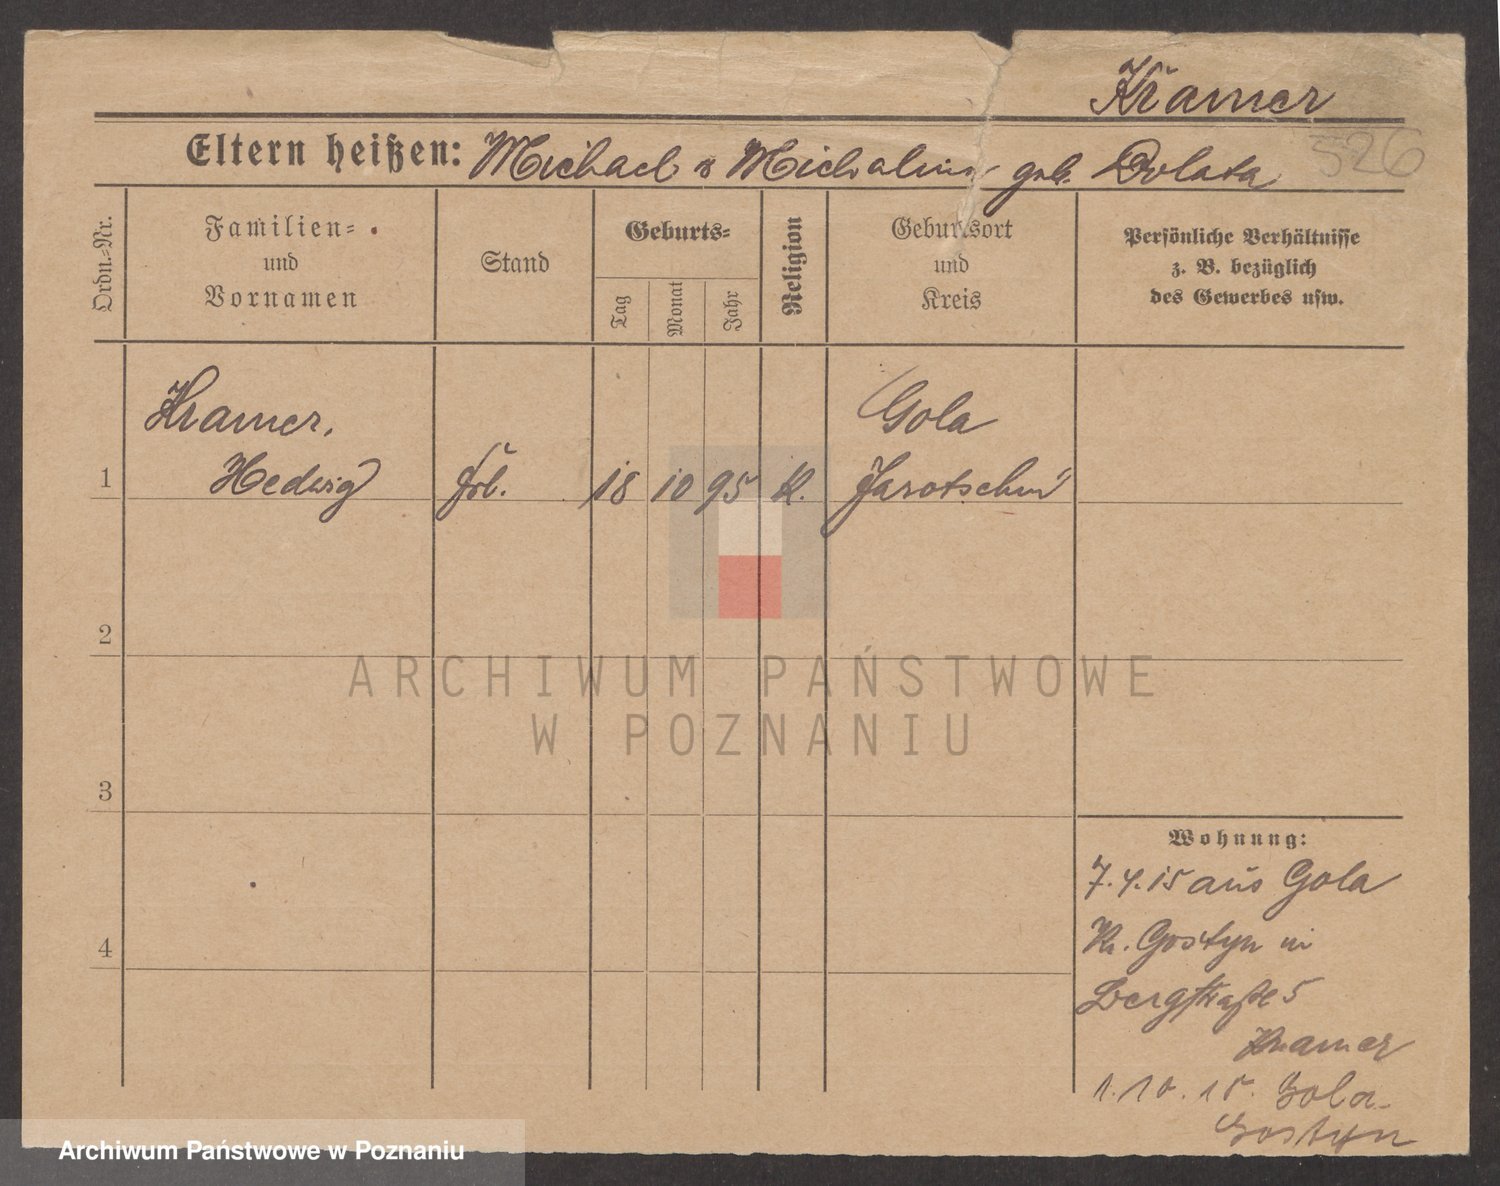 Kramer
526
Eltern heißen: Michael & Michalina geb. Dolata
Ordn.-Nr.
Familien-
und
Vornamen
Stand
Geburts-
Tag
Monat
Jahr
Religion
Geburtsort
und
Kreis
Persönliche Verhältnisse
z. B. bezüglich
des Gewerbes usw.
Kramer,
Hedwig
1
frl.
18
10
95
K.
Gola
Jarotschin
2
3
4
Wohnung:
7.4.15 aus Gola
Kr. Gostyn in
Bergstraße 5
Kramer
1.10.15. Gola-
Gostyn
ARCHIWUM PAŃSTWOWE
W POZNANIU
Archiwum Państwowe w Poznaniu